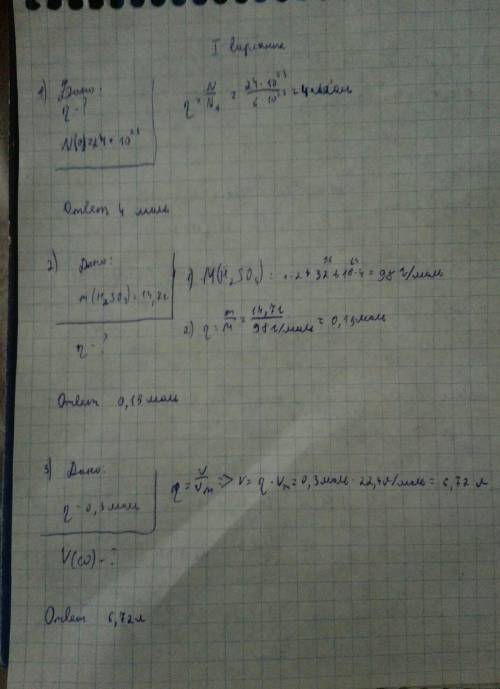 I вариант
1) Дано:
η - ?
N(O)=24·10²³
η = N/Nₐ = 24·10²³/6·10²³ = 4 моль
Ответ 4 моль
2) Дано:
m(H₂SO₄)=14,7г
η - ?
1) M(H₂SO₄) = = 98 г/моль
2) η = m/M = 14,7г/98г/моль = 0,15моль
Ответ 0,15моль
3) Дано:
η - 0,3 моль
V(CO) - ?
η = V/Vₘ => V = η · Vₘ = 0,3моль · 22,4л/моль = 6,72 л
Ответ 6,72л